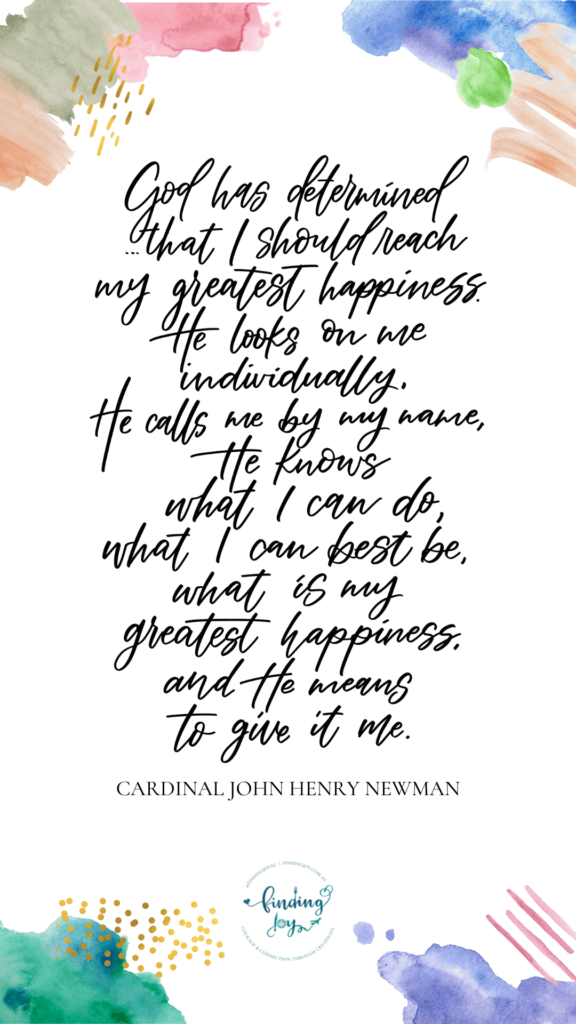 God has determined
...that I should reach
my greatest happiness.
He looks on me
individually,
He calls me by my name,
He knows
what I can do,
what I can best be,
what is my
greatest happiness,
and He means
to give it me.
CARDINAL JOHN HENRY NEWMAN
finding
joy
COURAGE & CONNECTION THROUGH CREATIVITY